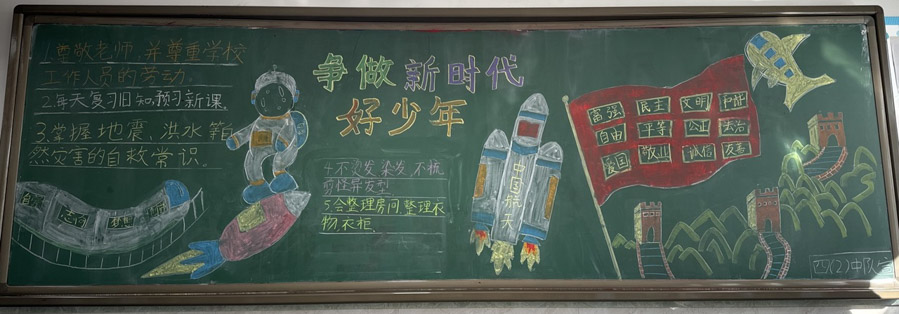 1.尊敬老师,并尊重学校
工作人员的劳动。
2.每天复习旧知,预习新课。
3.掌握地震、洪水等自
然灾害的自救常识。
争做新时代
好少年
4.不烫发 染发,不梳
剪怪异发型
5.会整理房间,整理衣
物,衣柜.
中国航天
富强 民主 文明 和谐
自由 平等 公正 法治
爱国 敬业 诚信 友善
四(2)中队宣